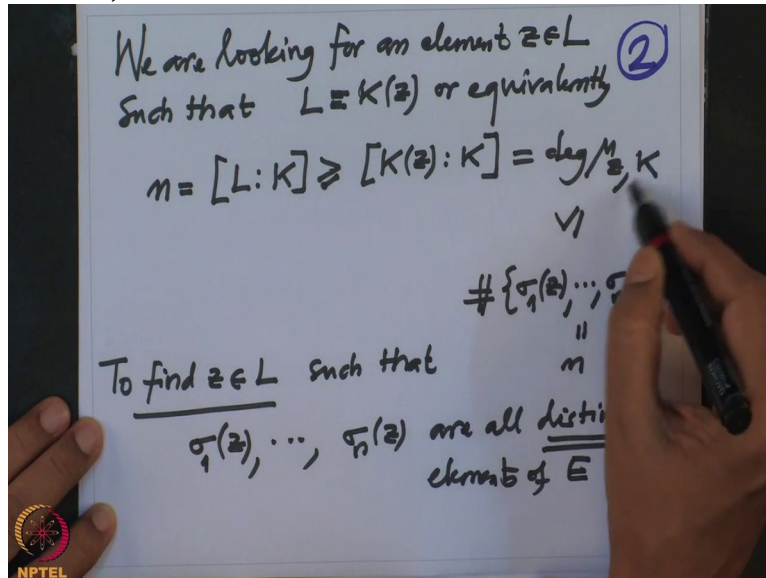 We are looking for an element z∈L
②
Such that L = K(z) or equivalently
n = [L:K] ⩾ [K(z):K] = deg μ_z,K
∨|
#{σ₁(z),…,σ
||
n
To find z∈L such that
σ₁(z), ⋯, σₙ(z) are all
elements of E
NPTEL